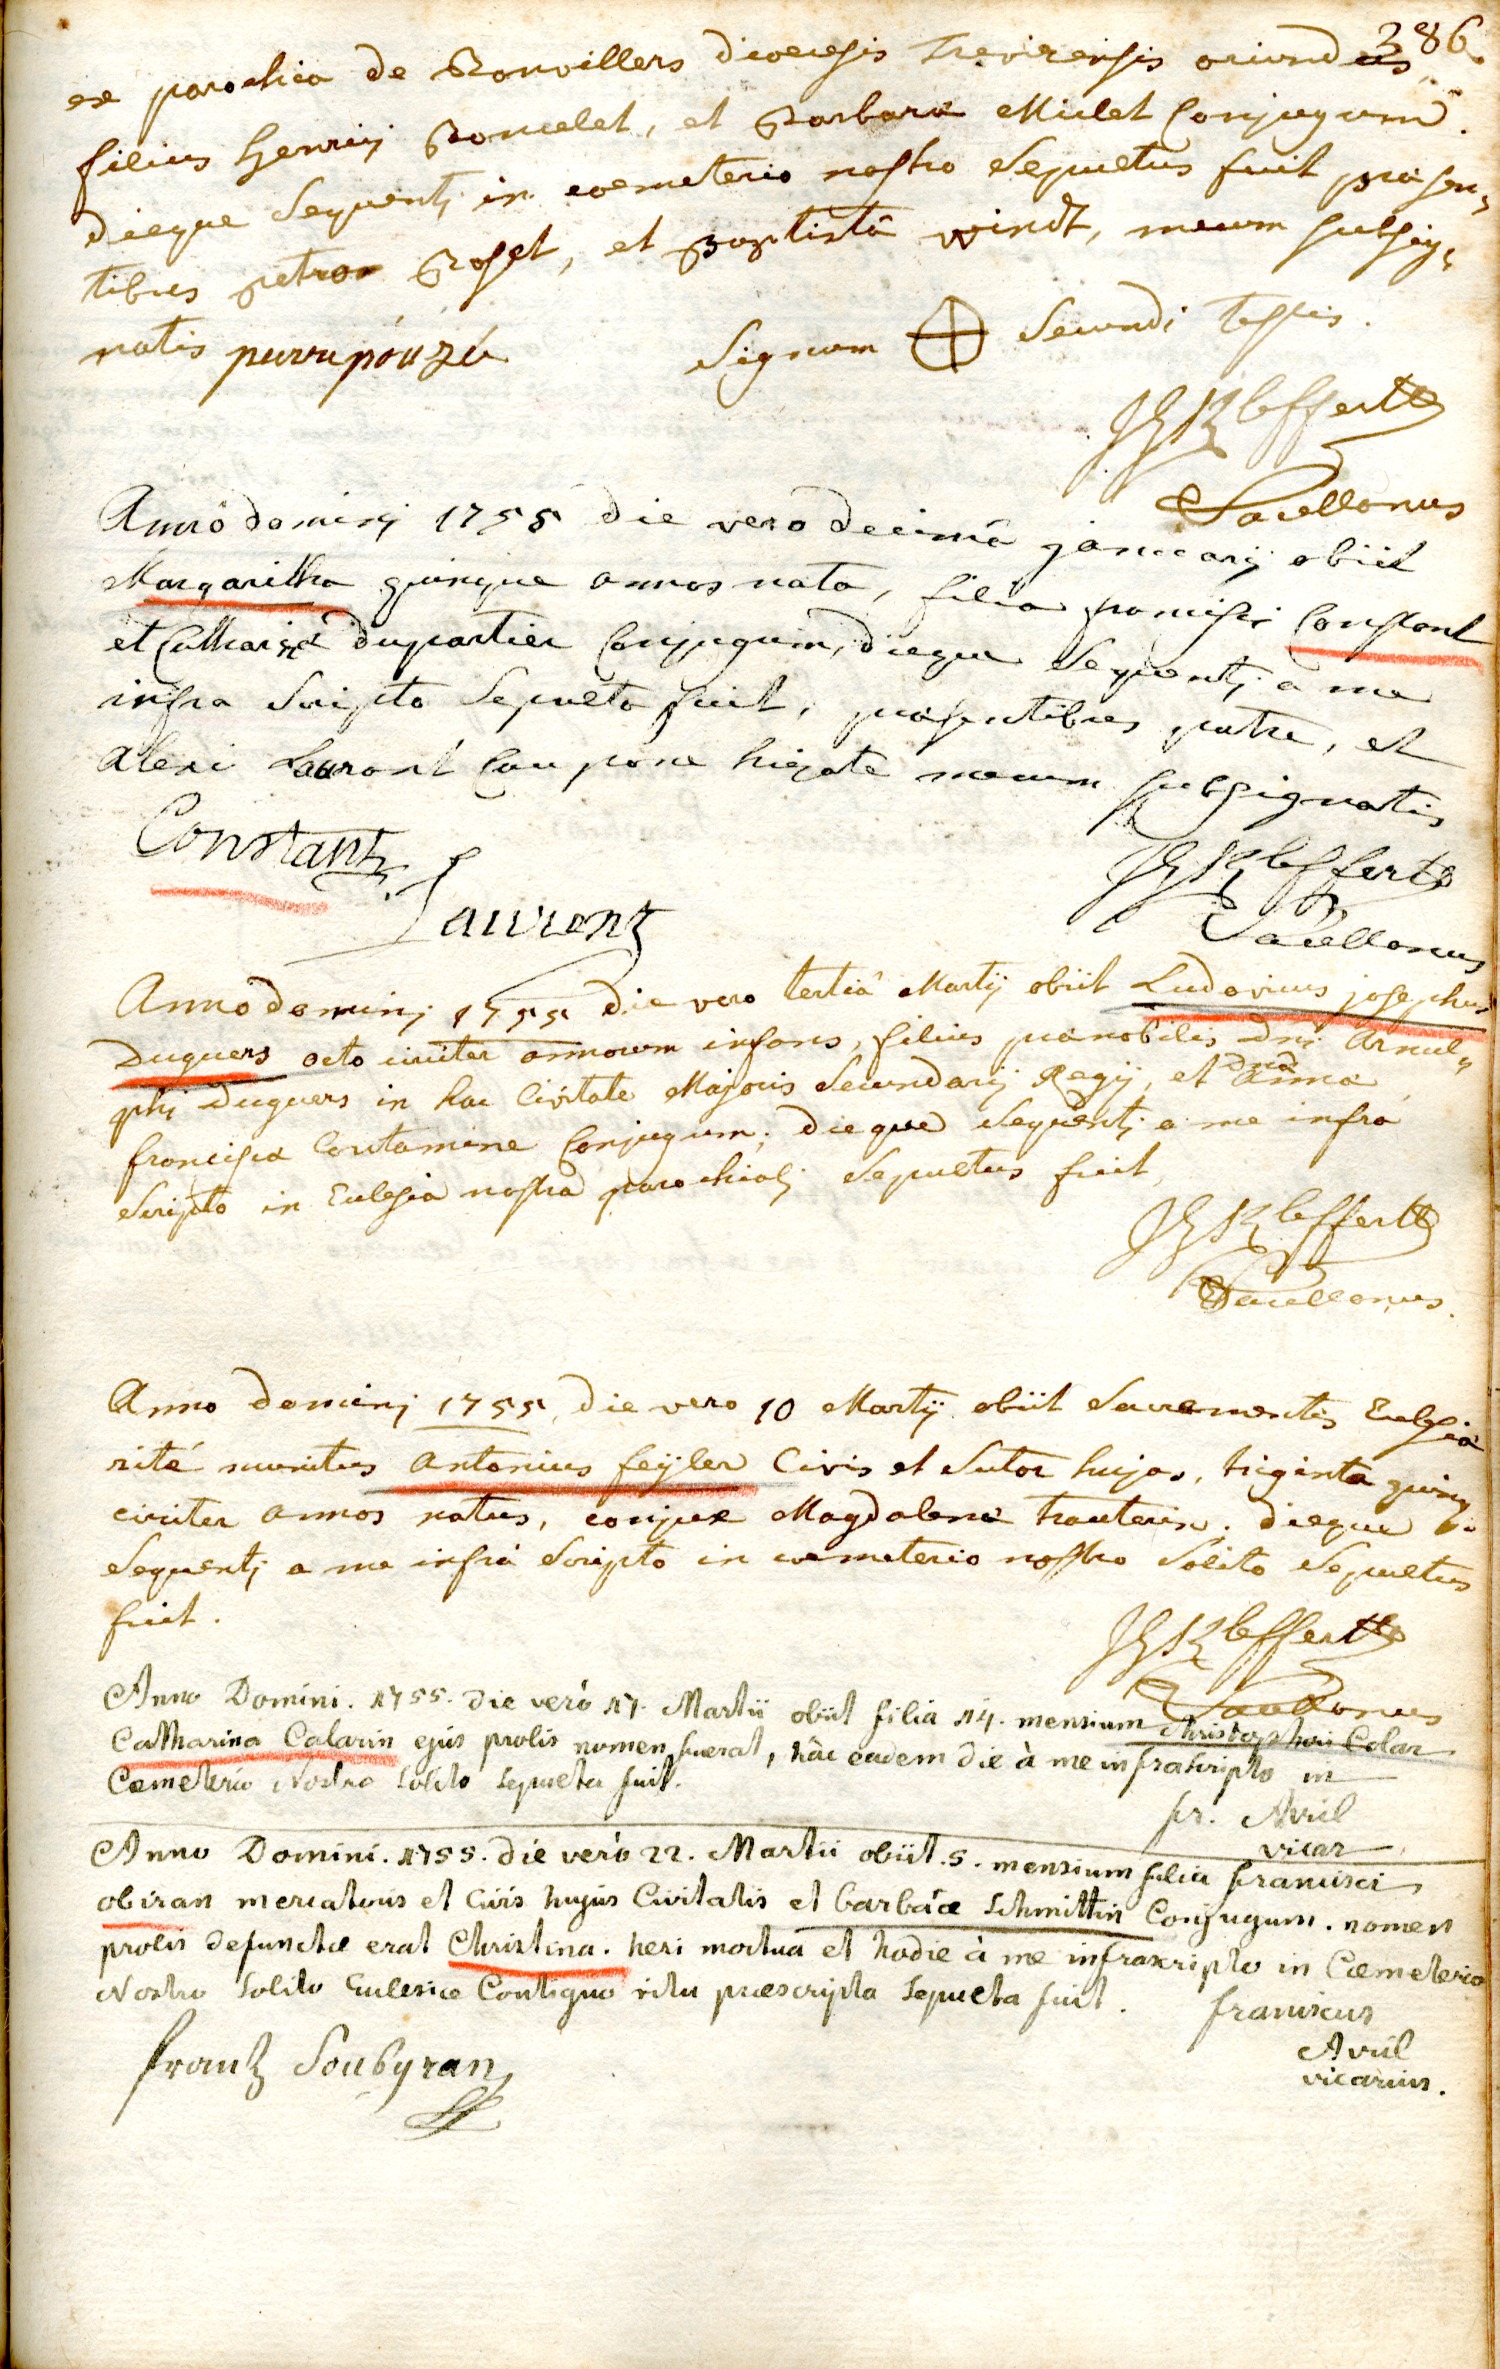 386.
ex parochia de Bonvillers dioecesis Trevirensis oriundus
filius Henrici Poncelet, et Barbara Milet Conjugum.
dieque sequentj in coemeterio nostro Sepultus fuit præsen,
tibus petro Roset, et Baptistâ windt, mecum subsig,
natis
Signum Secundi testis.
Sacellanus
Anno dominj 1755 die vero decimâ januarij obiit
Margaritha quinque annos nata, filia francisci Constant
et Catharinæ dupartier Conjugum, dieque sequentj a me
infra scripto Sepulta fuit, præsentibus patre, et
alexi Laurent Caupone hiejate mecum subsignatis
Constant
Laurent
Sacellanus
Anno dominj 1755 die vero tertiâ Martij obiit Ludovicus josephus
Duguers octo circiter annorum infans, filius prænobilis Dni Arnul,
phj Duguers in hac Civitate Majoris Secundarij Regij, et dnæ Annæ
franciscæ Contamine Conjugum, dieque sequentj a me infrà
Scripto in Ecclesia nostra parochialj Sepultus fuit,
Sacellanus.
Anno dominj 1755, die vero 10 Martij obiit Sacramentis Ecclesiæ
rité munitus Antonius feÿler Civis et Sutor hujas, triginta quinq
circiter annos natus, conjux Magdalenæ trauterin. dieque
Sequentj a me infrà Scripto in coemeterio nostro Solito Sepultus
fuit.
Sacellanus
Anno Domini. 1755. die verò 17. Martii obiit filia 14. mensium Christophori Colar
Catharina Calarin ejus prolis nomen fuerat, hâc eadem die à me infrascripto in
Cæmeterio Nostro solito sepulta fuit.
fr. Avril
vicar
Anno Domini. 1755. die verò 22. Martii obiit. 5. mensium filia francisci
obiran mercatoris et Civis hujus Civitatis et barbaræ Schmittin Conjugum. nomen
prolis defunctæ erat Christina. heri mortua et hodie à me infrascripto in Cæmeterio
Nostro solito Ecclesiæ Contiguo ritu præscripta sepulta fuit.
franciscus
Avril
vicarius.
frantz Soubyran